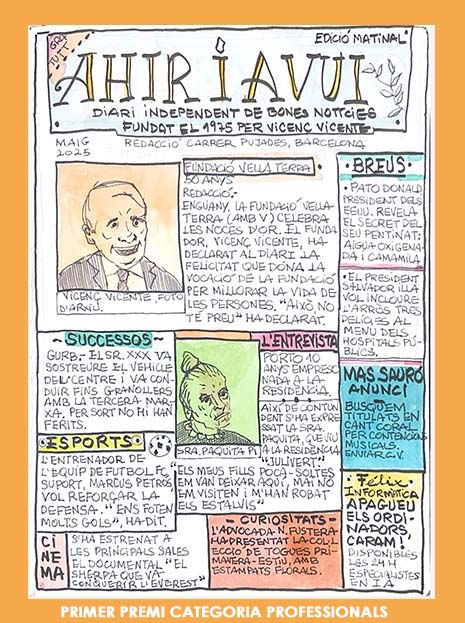 GRA
TUÏT
EDICIÓ MATINAL
AHIR I AVUI
DIARI INDEPENDENT DE BONES NOTÍCIES
FUNDAT EL 1975 PER VICENÇ VICENTE
MAIG
2025
REDACCIÓ CARRER PUJADES, BARCELONA
VICENÇ VICENTE, FOTO
D'ARXIU.
FUNDACIÓ VELLA TERRA
50 ANYS
REDACCIÓ.-
ENGUANY, LA FUNDACIÓ VELLA
TERRA (AMB V) CELEBRA
LES NOCES D'OR. EL FUNDA
DOR, VICENÇ VICENTE, HA
DECLARAT AL DIARI LA
FELICITAT QUE DÓNA LA
VOCACIÓ DE LA FUNDACIÓ
PER MILLORAR LA VIDA DE
LES PERSONES. "AIXÒ NO
TÉ PREU" HA DECLARAT.
·BREUS·
·PATO DONALD
PRESIDENT DELS
EEUU. REVELA
EL SECRET DEL
SEU PENTINAT:
AIGUA OXIGENA
DA I CAMAMILA
·EL PRESIDENT
SALVADOR ILLA
VOL INCLOURE
L'ARRÒS TRES
DELÍCIES AL
MENÚ DELS
HOSPITALS PÚ-
BLICS.
-SUCCESSOS-
GURB.- EL SR. XXX VA
SOSTREURE EL VEHICLE
DEL CENTRE I VA CON
DUIR FINS GRANOLLERS
AMB LA TERCERA MAR-
XA. PER SORT NO HI HAN
FERITS.
SRA. PAQUITA PI
L'ENTREVISTA
PORTO 10
ANYS EMPRESO
NADA A LA
RESIDÈNCIA.
AIXÍ DE CONTUN
DENT S'HA EXPRES
SAT LA SRA.
PAQUITA, QUE VIU
A LA RESIDÈNCIA
"JULIVERT".
ELS MEUS FILLS POCA-SOLTES
EM VAN DEIXAR AQUÍ, MAI NO
EM VISITEN I M'HAN ROBAT
ELS ESTALVIS"
MAS SAURÓ
ANUNCI
BUSQUEM
TITULATS EN
CANT CORAL
PER CONTENCIONS
MUSICALS
ENVIAR C.V.
·ESPORTS·
L'ENTRENADOR DE
L'EQUIP DE FUTBOL FC
SUPORT, MARCUS PETRÓS
VOL REFORÇAR LA
DEFENSA. "ENS FOTEN
MOLTS GOLS", HA DIT.
CI
NE
MA
S'HA ESTRENAT A
LES PRINCIPALS SALES
EL DOCUMENTAL "EL
SHERPA QUE VA
CONQUERIR L'EVEREST"
-CURIOSITATS-
L'ADVOCADA N. FUSTERA
HA PRESENTAT LA COL·LE
CCIÓ DE TOGUES PRI-
MAVERA-ESTIU, AMB
ESTAMPATS FLORALS.
Fèlix
INFORMÀTICA
APAGUEU
ELS ORDI
NADORS,
CARAM!
DISPONIBLES
LES 24H
ESPECIALISTES
EN I A
PRIMER PREMI CATEGORIA PROFESSIONALS